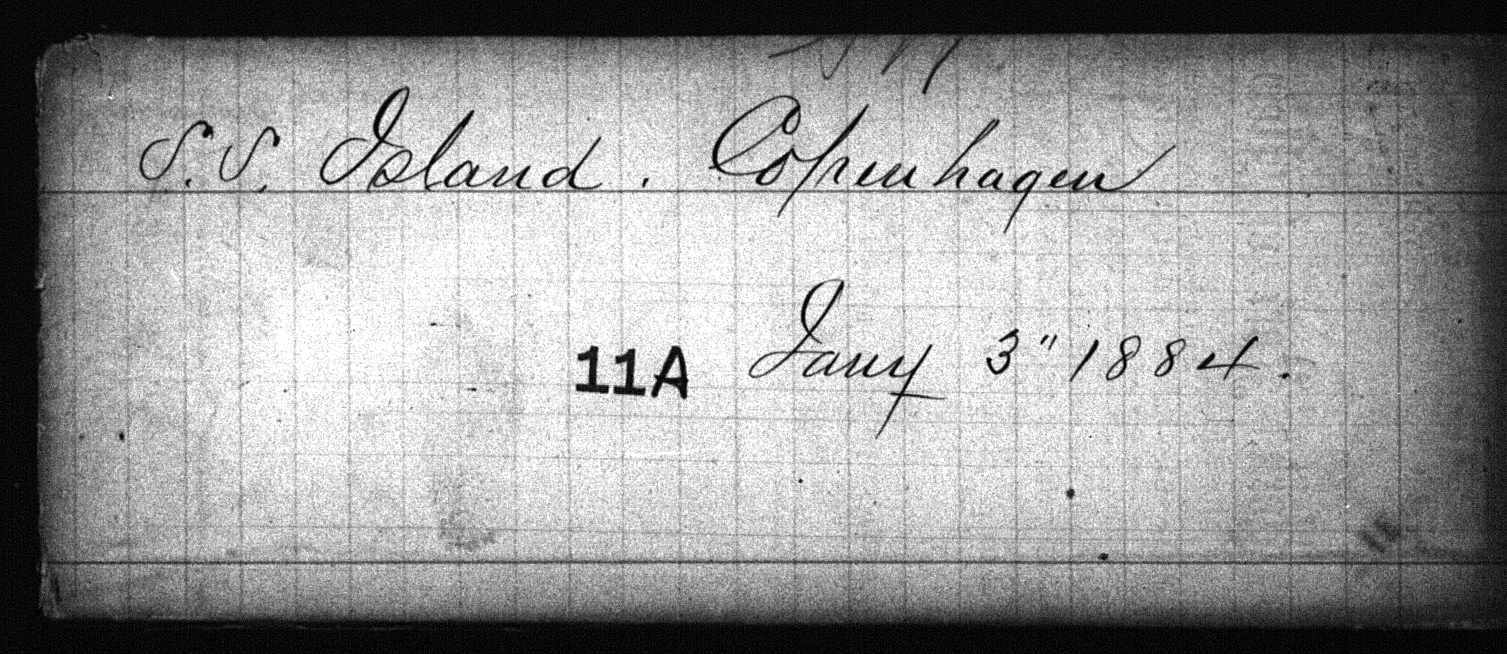 S.S. Island. Copenhagen
11A Jany 3" 1884.